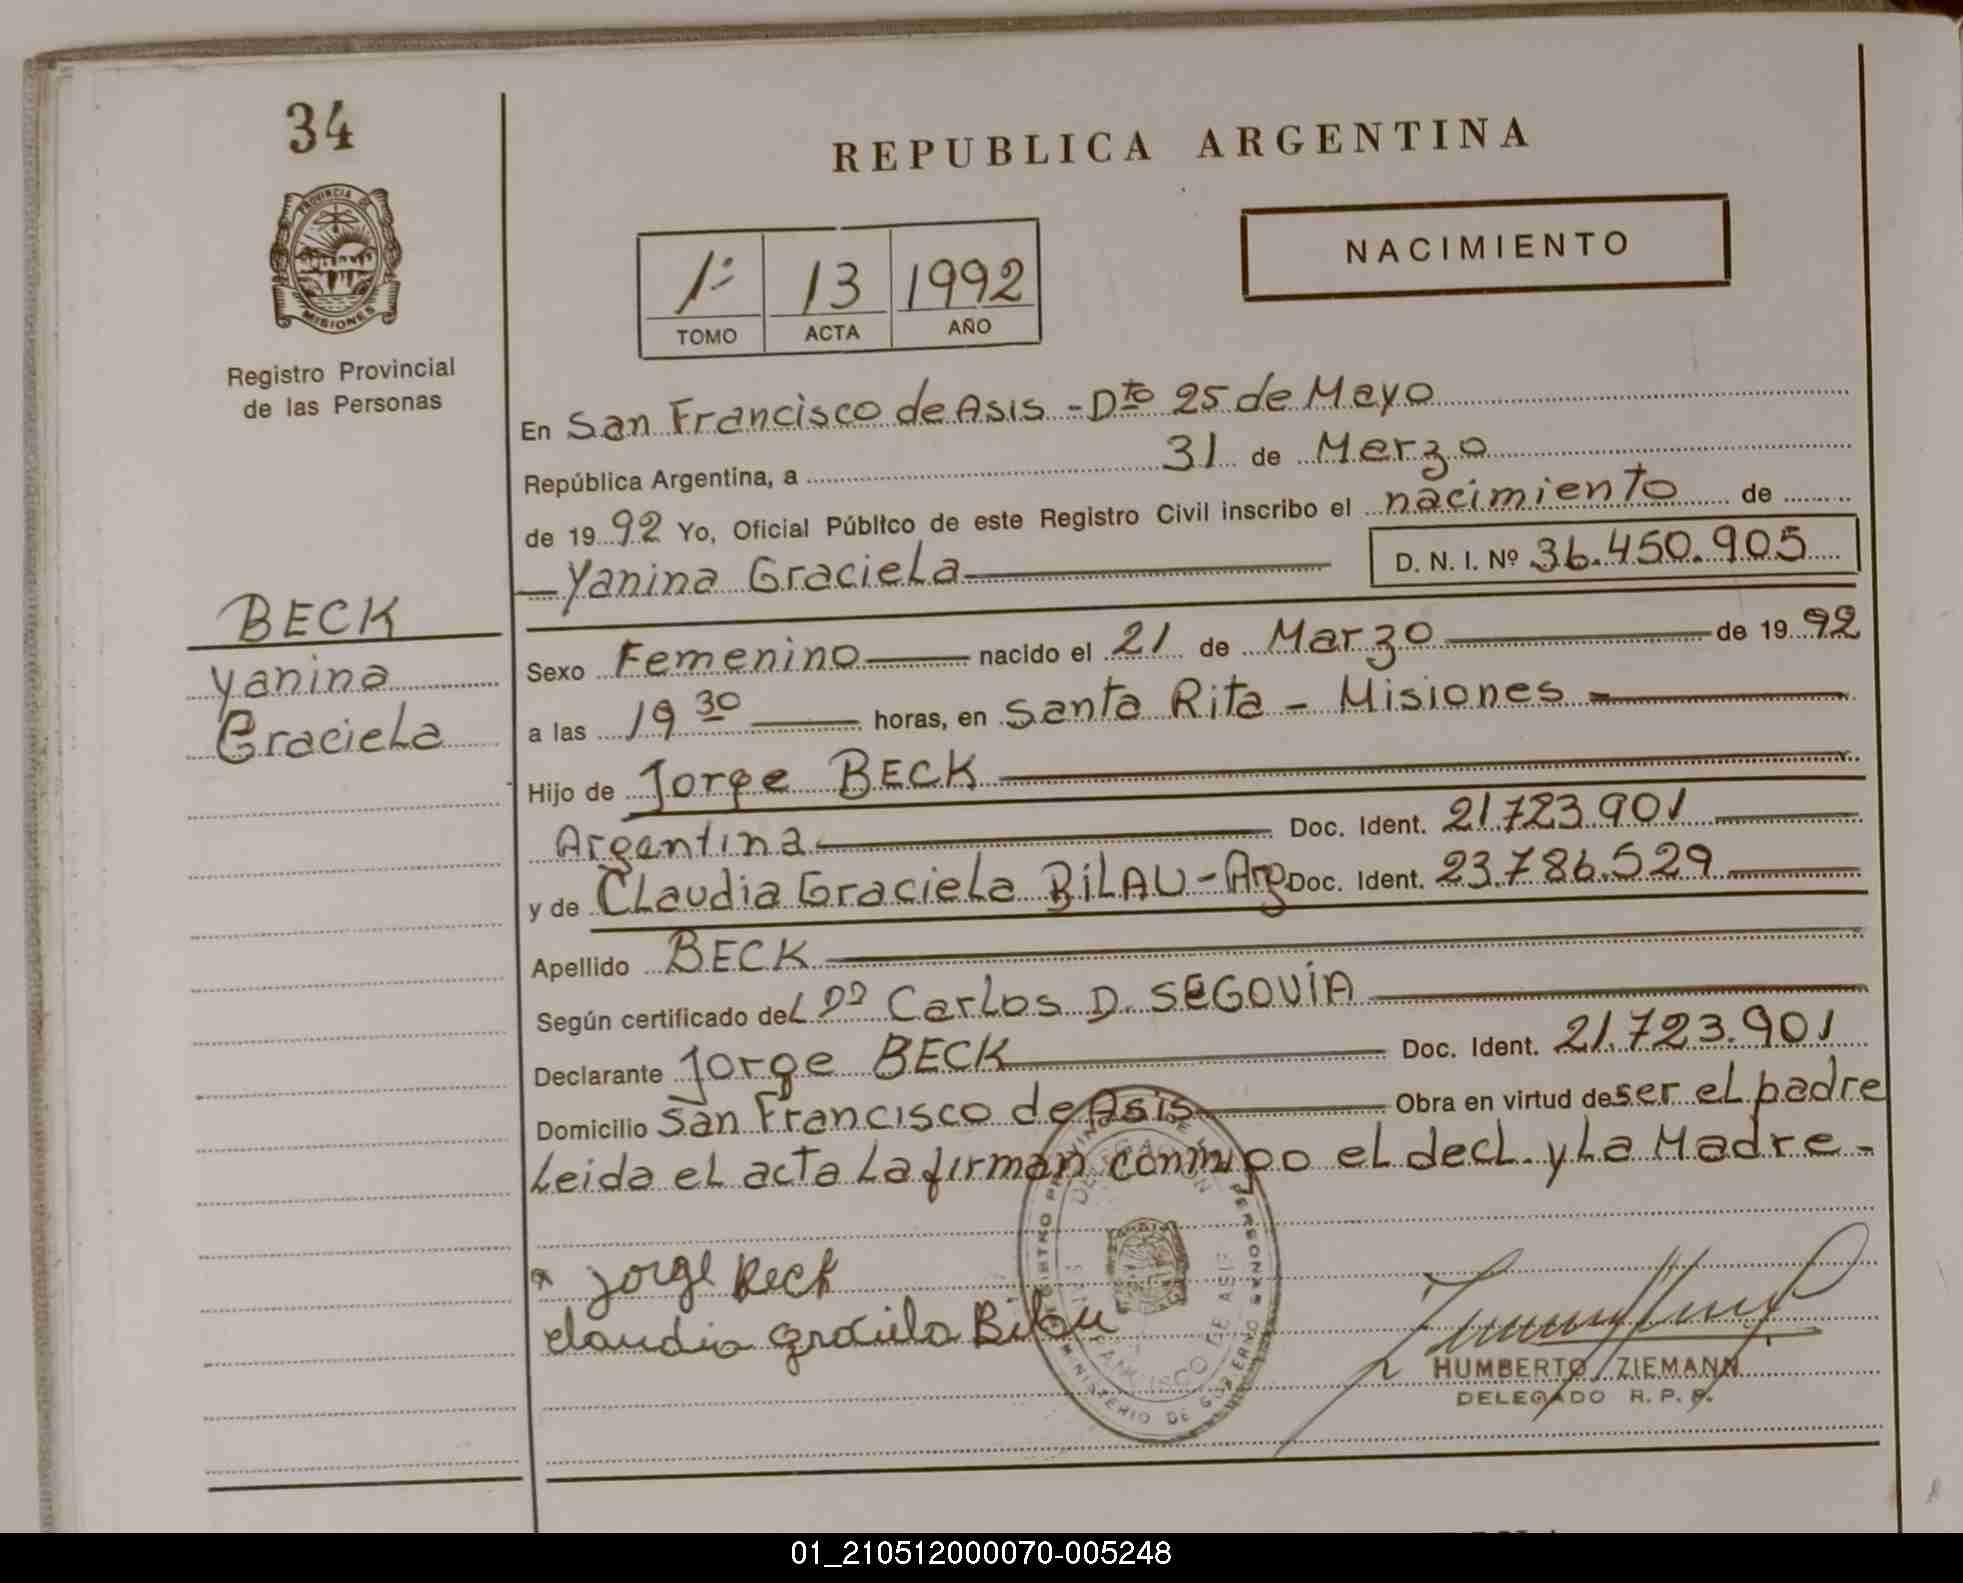 34
REPUBLICA ARGENTINA
PROVINCIA DE
MISIONES
Registro Provincial
de las Personas
NACIMIENTO
1º 13 1992
TOMO ACTA AÑO
En San Francisco de Asis - Dto 25 de Mayo
República Argentina, a 31 de Marzo
de 1992 Yo, Oficial Público de este Registro Civil inscribo el nacimiento de
Yanina Graciela D. N. I. Nº 36.450.905
BECK
Yanina
Graciela
Sexo Femenino nacido el 21 de Marzo de 1992
a las 19 30 horas, en Santa Rita - Misiones
Hijo de Jorge BECK
Argentina Doc. Ident. 21.723.901
y de Claudia Graciela BILAU - Arg Doc. Ident. 23.786.529
Apellido BECK
Según certificado del Dr Carlos D. SEGOVIA
Declarante Jorge BECK Doc. Ident. 21.723.901
Domicilio San Francisco de Asis Obra en virtud de ser el padre
Leida el acta la firman conmigo el decl. y la Madre -
Jorge Beck
Claudia Graciela Bilau
MINISTERIO DE GOBIERNO
FRANCISCO DE ASIS
HUMBERTO ZIEMANN
DELEGADO R. P. P.
01_210512000070-005248